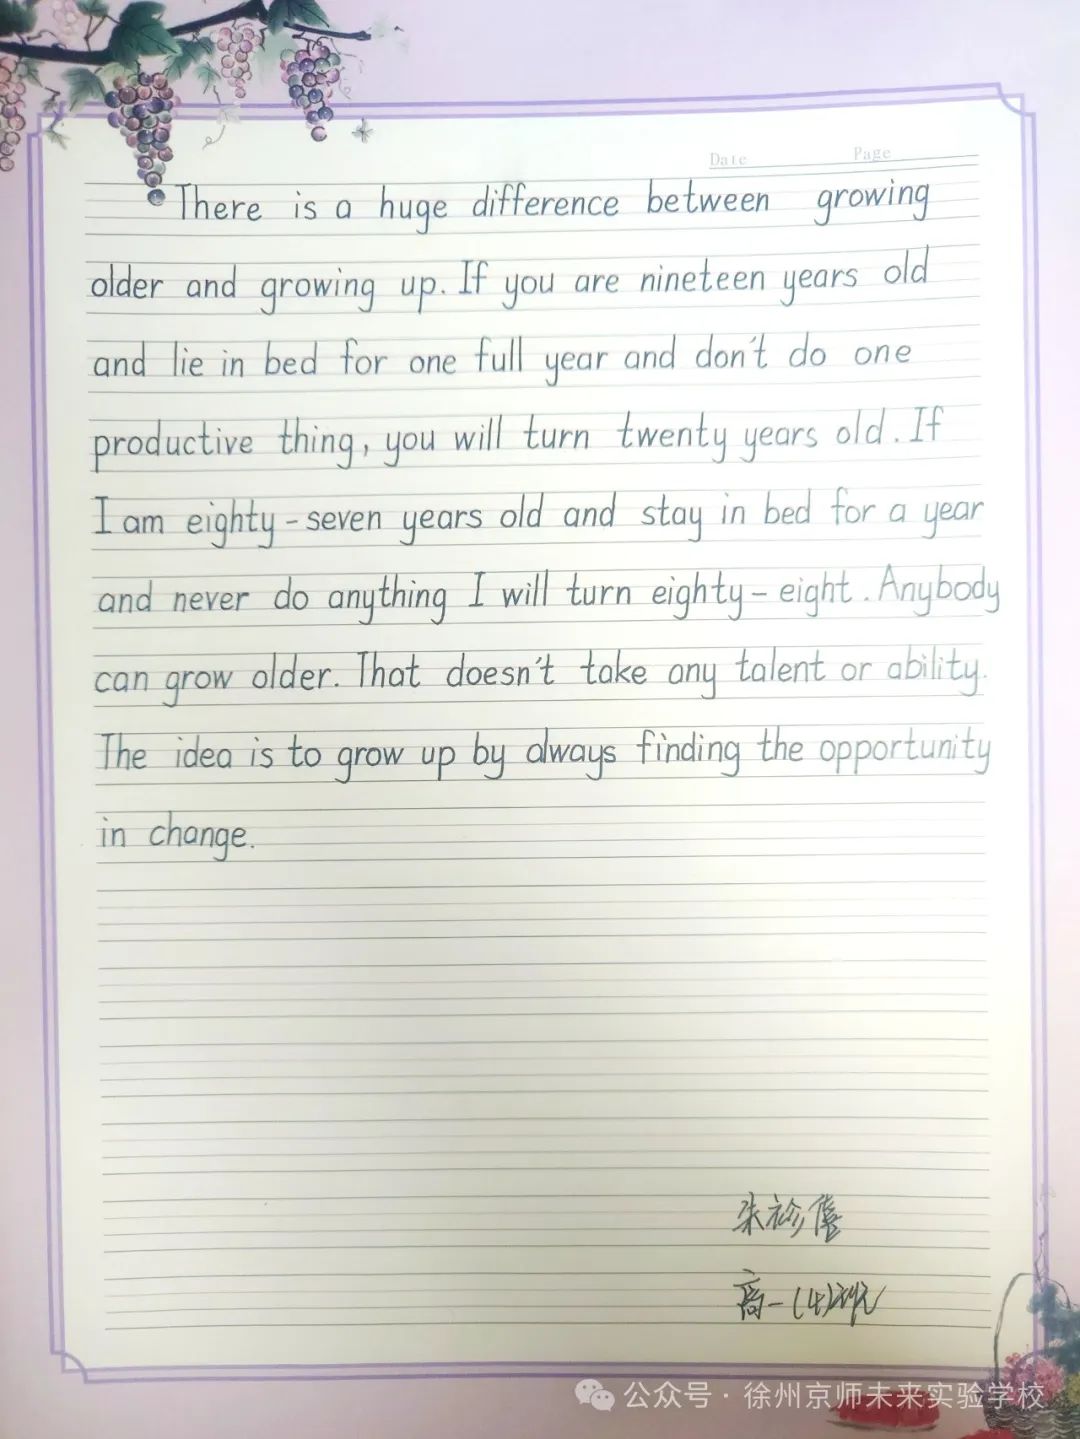 Date Page
There is a huge difference between growing
older and growing up. If you are nineteen years old
and lie in bed for one full year and don't do one
productive thing, you will turn twenty years old. If
I am eighty-seven years old and stay in bed for a year
and never do anything I will turn eighty-eight. Anybody
can grow older. That doesn't take any talent or ability.
The idea is to grow up by always finding the opportunity
in change.
高一(4)班
公众号·徐州京师未来实验学校